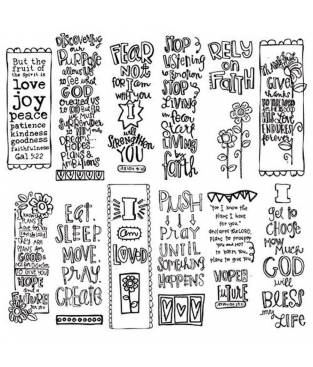 But the
fruit of
the spirit is
love
joy
peace
patience
kindness
goodness
faithfulness
Gal 5:22
discovering
our
PURPOSE
allows us
to see what
GOD
created us
to
must
surrender
to
our
DREAMS,
HOPES,
PLANS &
ambitions
FEAR
Not
for I am
with you
I
will
strengthen
you
STOP
listening
to Emotion
STOP
LIVING
in
fear
Start
LIVING
by
faith
RELY
on
FAITH
GIVE
thanks
to the LORD
LOVE
ENDURES
forever
I
know the
PLANS
I have
THEY ARE
PLANS for
GOOD &
NOT for
DISASTER
to give you
HOPE
and a
FUTURE
EAT.
SLEEP.
MOVE.
PRAY.
CREATE
I
am
LOVED
PUSH
PRAY
UNTIL
SOMETHING
HAPPENS
"For I know the
plans I have
for you,"
declares the LORD,
plans to prosper
you and not
to harm you,
plans to give you
HOPE &
future
I
get to
CHOOSE
how
Much
GOD
will
BLESS
my
LIFE